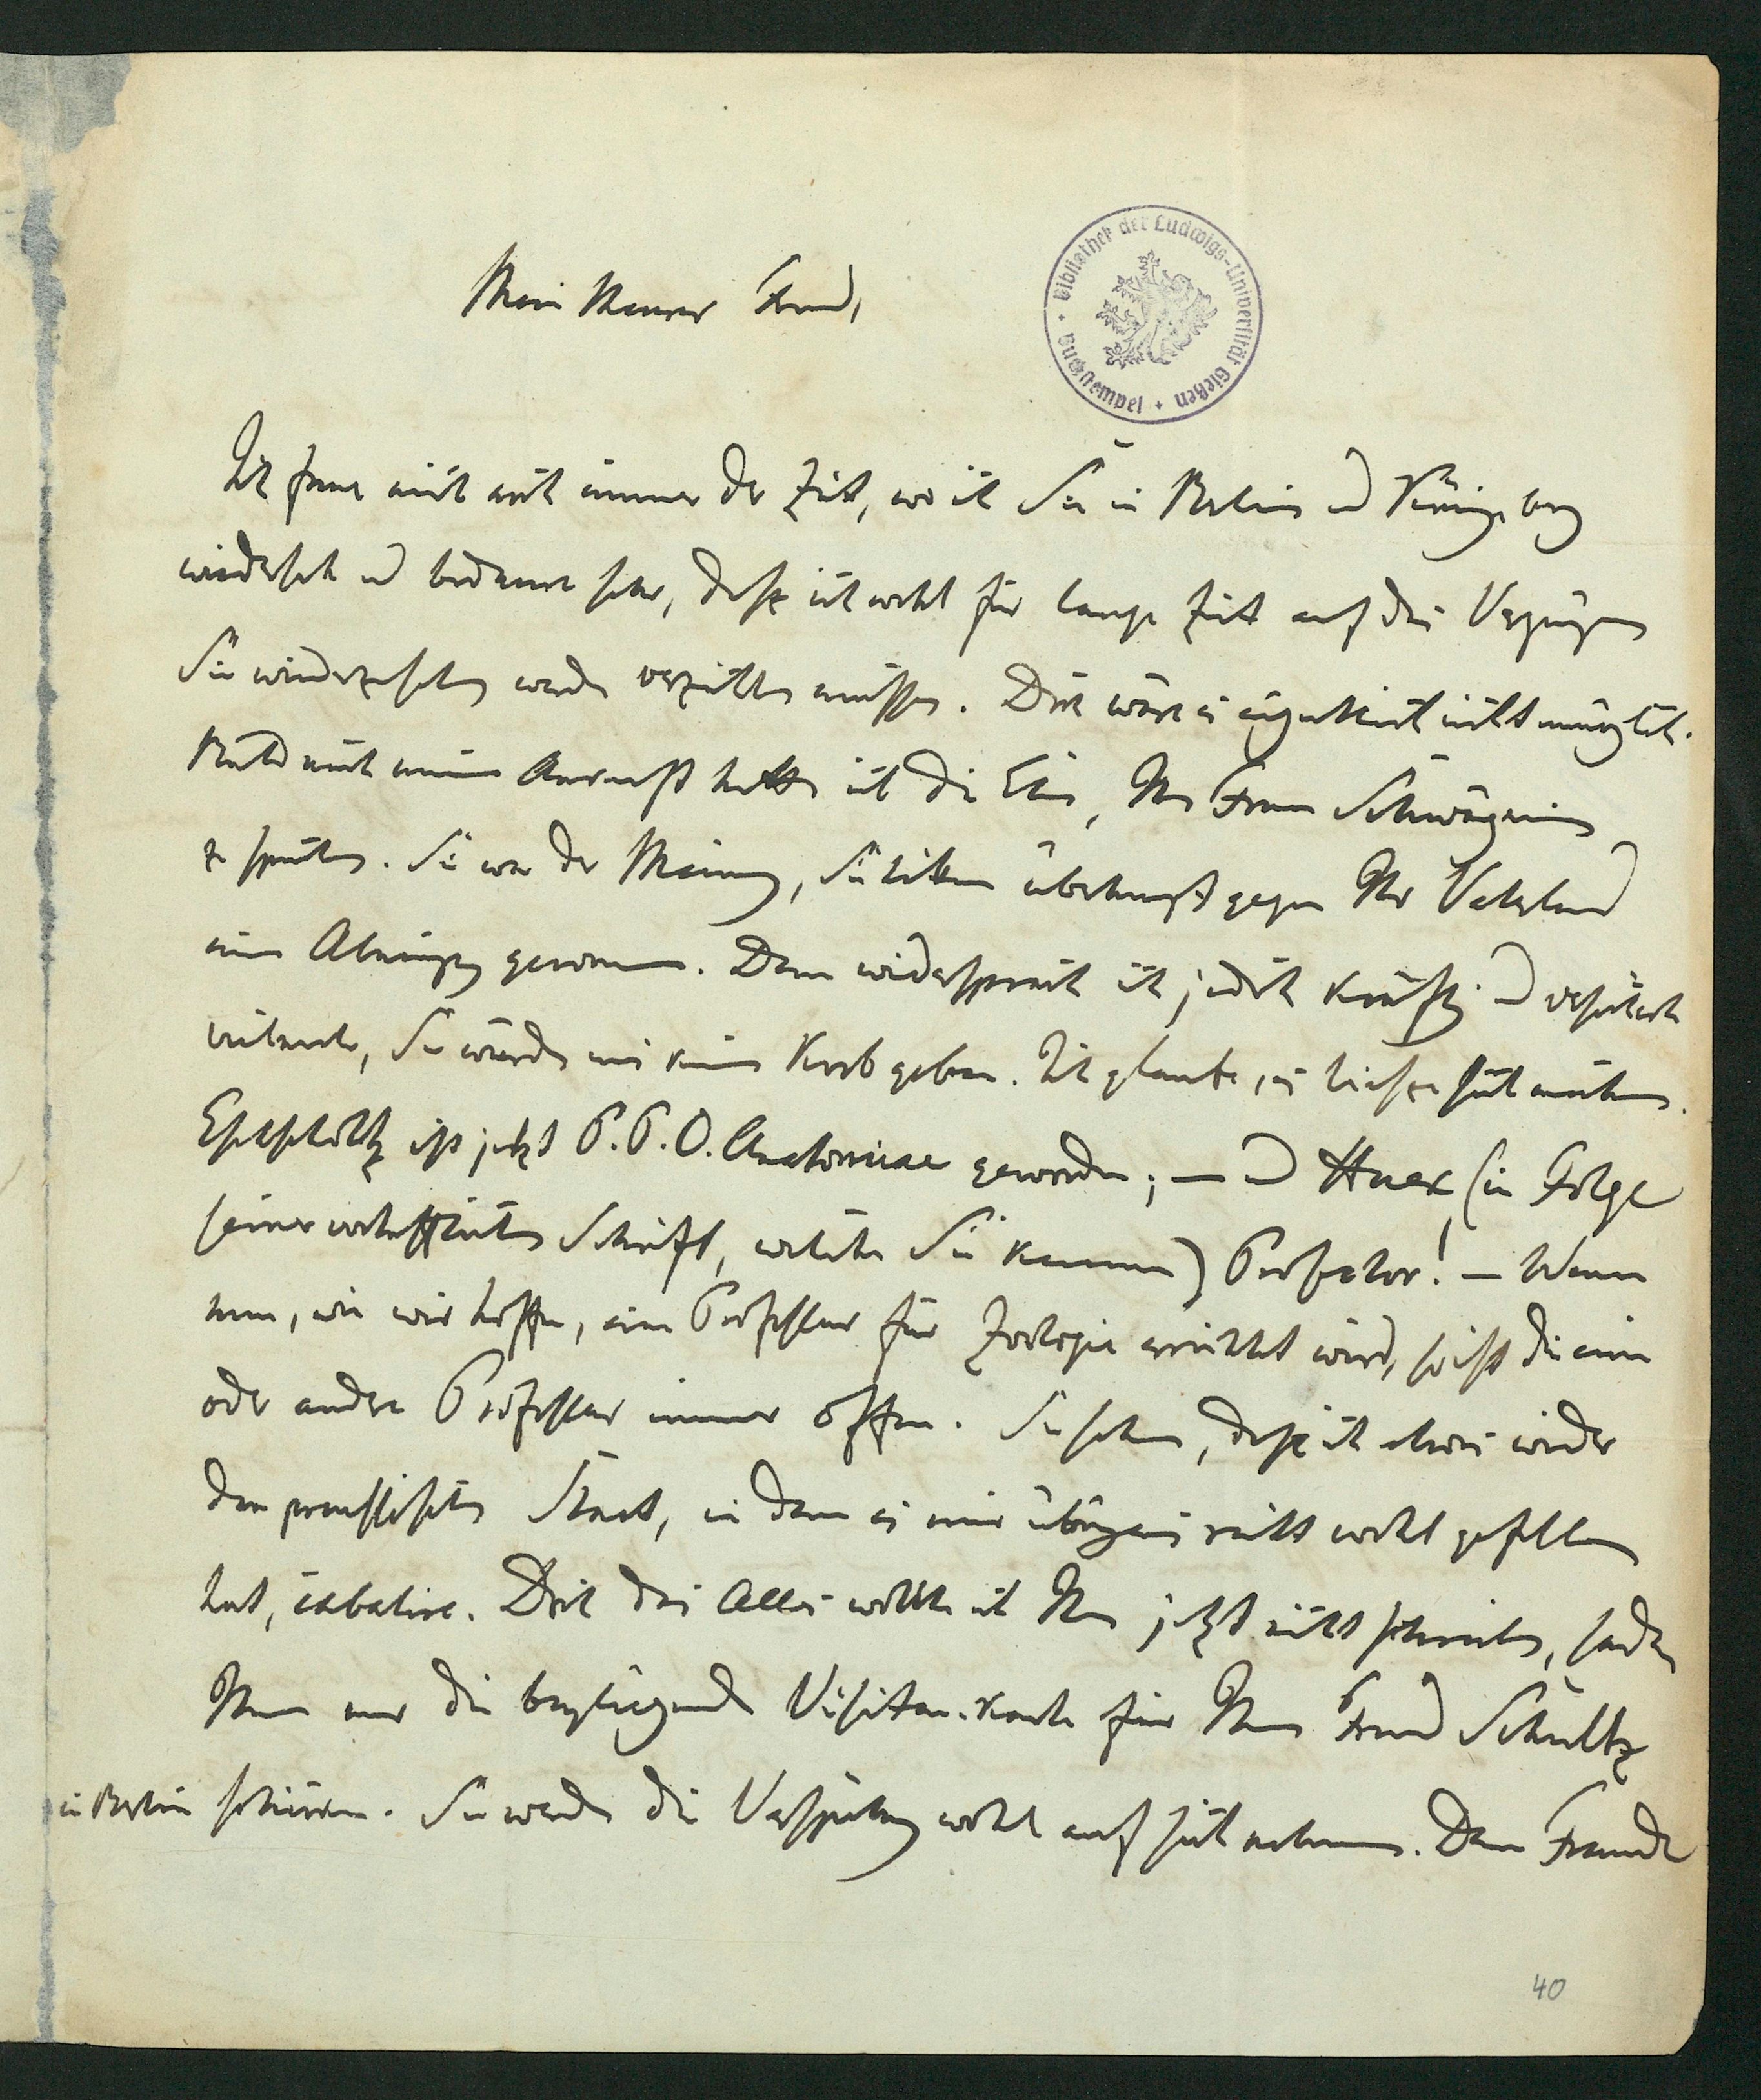 Mein theurer Freund,
Bibliothek der Ludwigs-Universität Gießen + Buchstempel +
Ich freue mich noch immer der Zeit, wo ich Sie in Berlin und Königsberg
wiedersah und bedaure sehr, daß ich wohl für lange Zeit auf das Vergnügen
Sie wiederzusehen werde verzichten müssen. Doch wäre es eigentlich nicht unmöglich.
Bald nach meiner Ankunft hatte ich die Ehre, Ihre Frau Schwägerin
zu sprechen. Sie war der Meinung, Sie hätten überhaupt gegen Ihr Vaterland
eine Abneigung gewonnen. Dem widersprach ich jedoch kräftig und versicherte
vielmehr, Sie würden uns keinen Korb geben. Ich glaube, es ließe sich machen.
Eschscholtz ist jetzt P. P. O. Anatomiae geworden; – und Hueck (in Folge
seiner vortrefflichen Schrift, welche Sie kennen) Prosector! – Wenn
nun, wie wir hoffen, eine Professur für Zoologie errichtet wird, so ist die eine
oder andere Professur immer offen. Sie sehen, daß ich etwas wider
den preussischen Staat, in dem es mir übrigens recht wohl gefallen
hat, cabalire. Doch das Alles wollte ich Ihnen jetzt nicht schreiben, sondern
Ihnen nur die beyliegende Visiten-karte für Ihren Freund Schultz
in Berlin schicken. Sie werden die Verspätung wohl auf sich nehmen. Dem Freunde
40